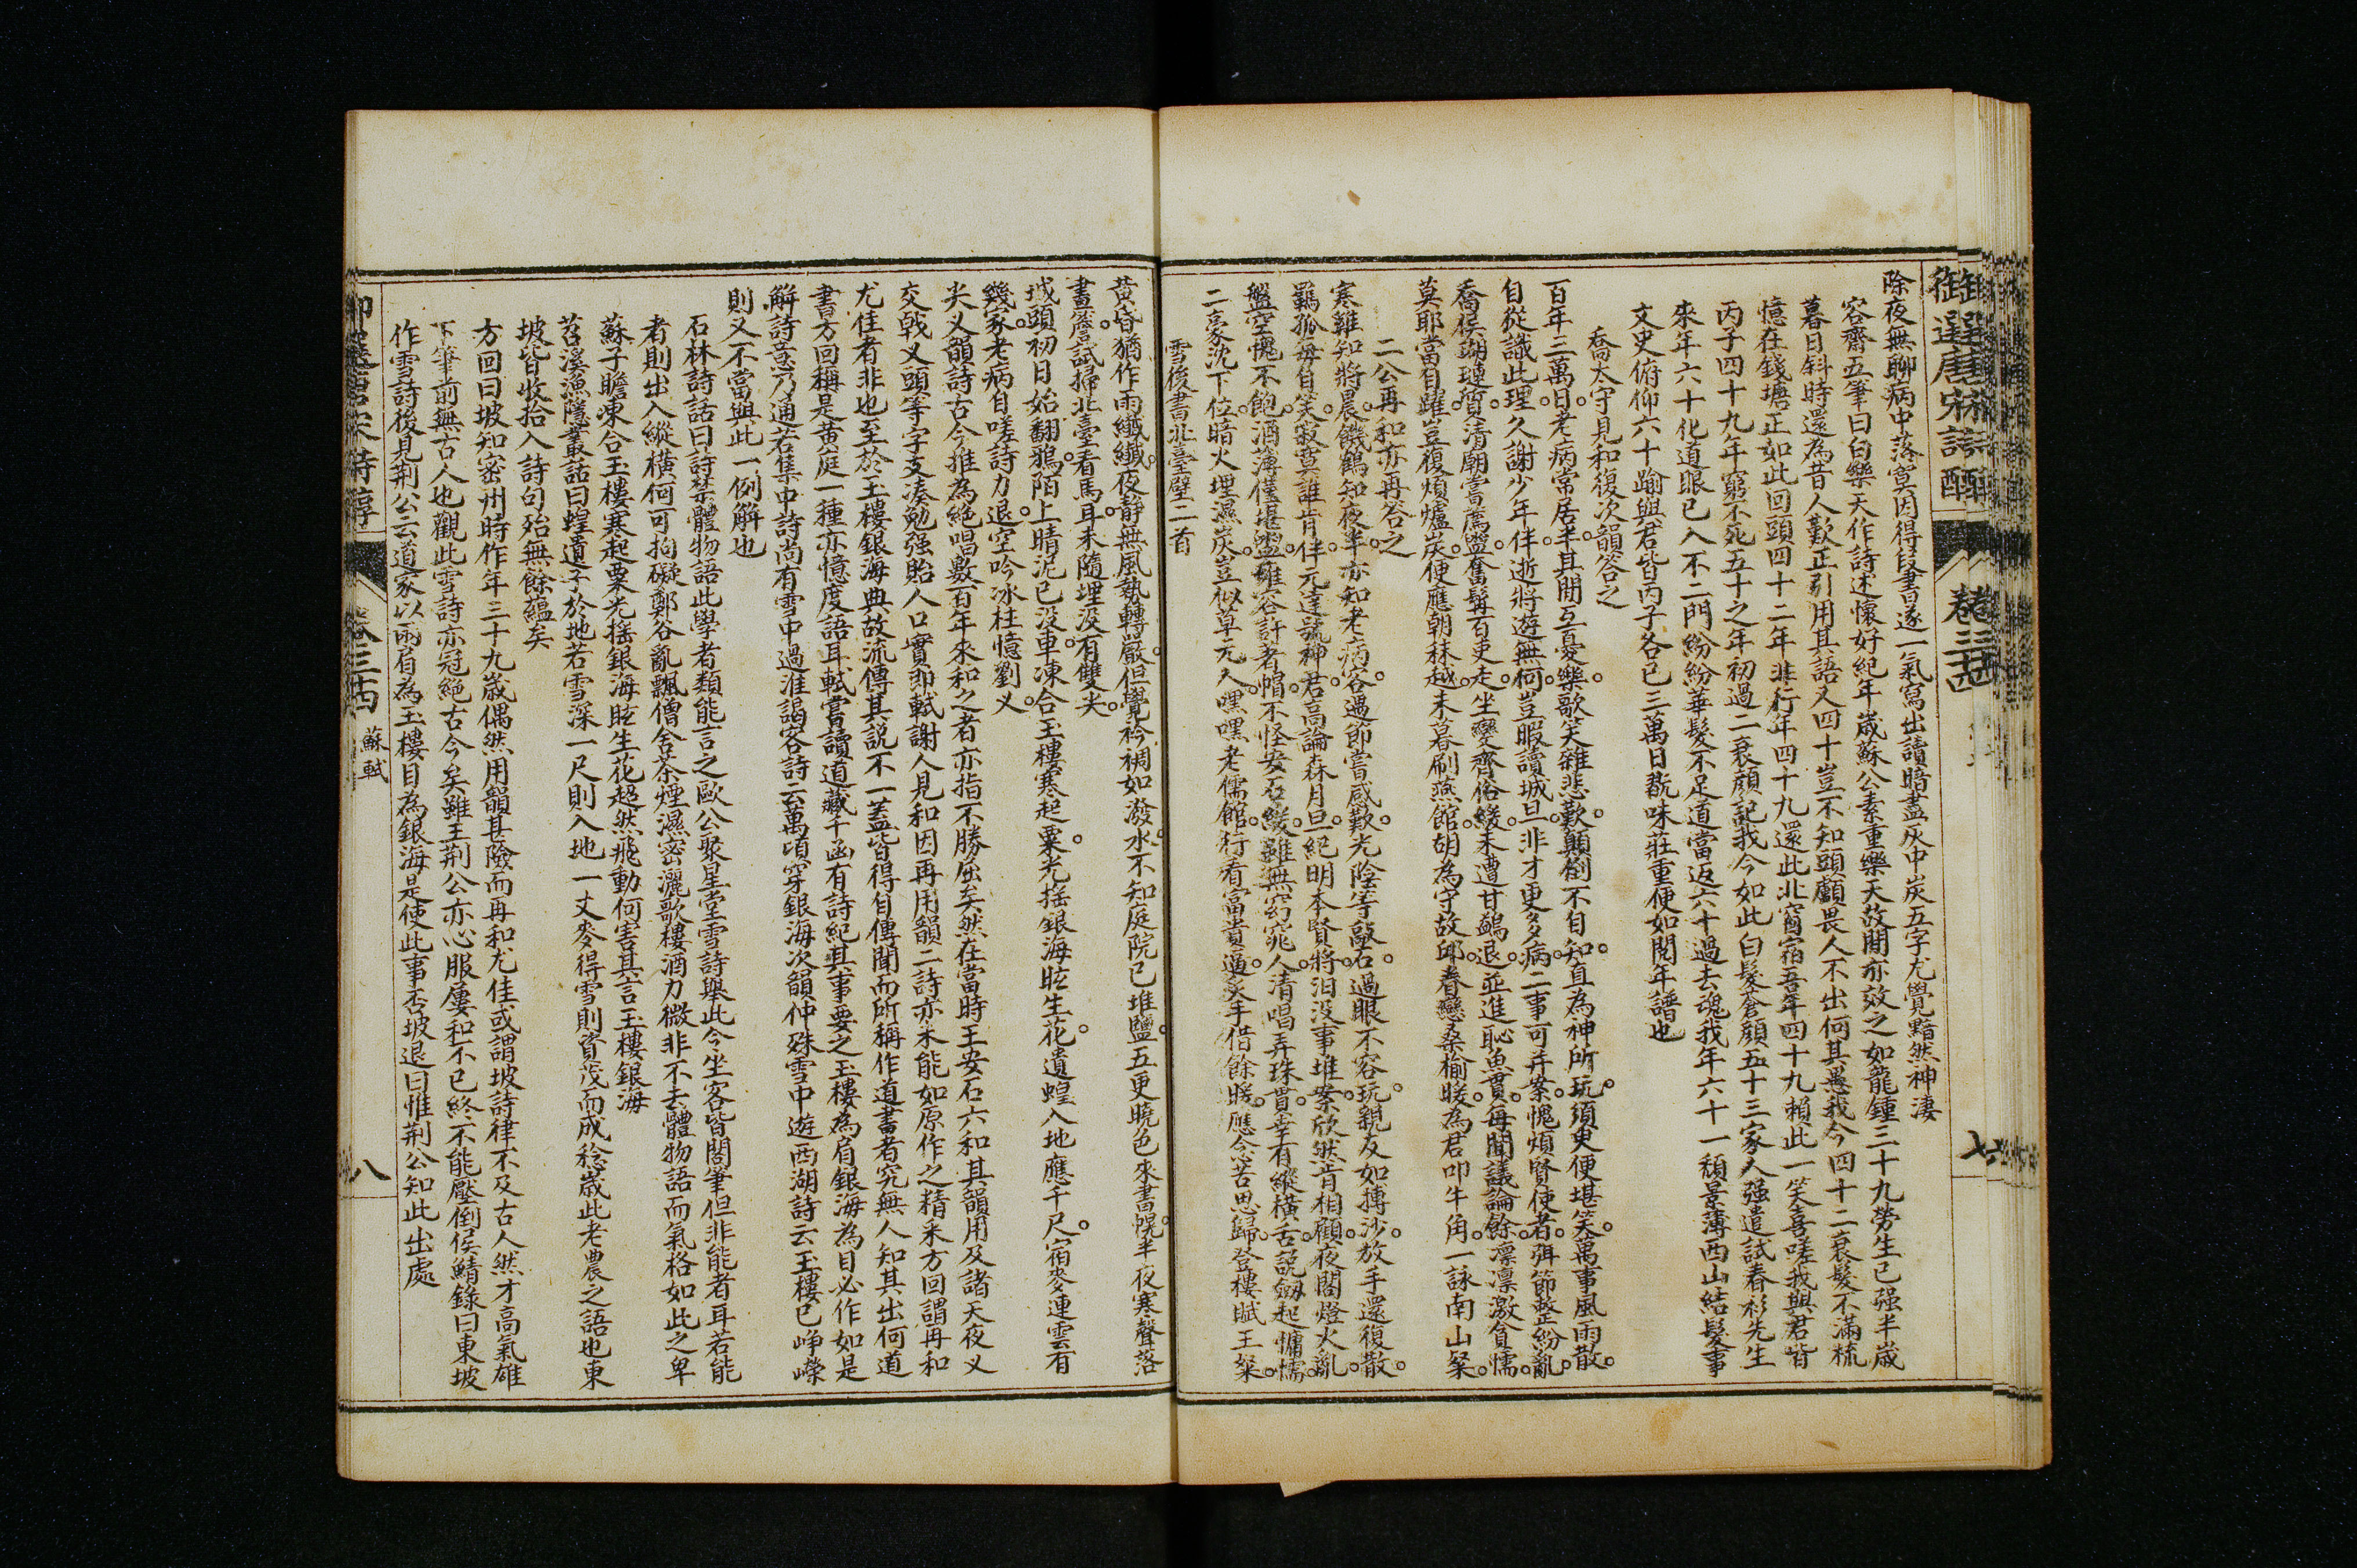 御選唐宋詩醇
卷三十四
七
除夜無聊病中落寞因得段書遂一氣寫出讀暗盡灰中炭五字尤覺黯然神淒
容齋五筆曰白樂天作詩述懷好紀年歲蘇公素重樂天故間亦效之如龍鍾三十九勞生已强半歲
暮日斜時還為昔人歎正引用其語又四十豈不知頭顱畏人不出何其愚我今四十二衰髮不滿梳
憶在錢塘正如此回頭四十二年非行年四十九還此北窗宿吾年四十九賴此一笑喜嗟我與君皆
丙子四十九年窮不死五十之年初過二衰顏記我今如此白髮蒼顏五十三家人强遣試春衫先生
來年六十化道眼已入不二門紛紛華髮不足道當返六十過去魂我年六十一頹景薄西山結髮事
文史俯仰六十踰與君皆丙子各已三萬日翫味莊重便如閱年譜也
喬太守見和復次韻答之
百年三萬日老病常居半其間互憂樂歌笑雜悲歎顛倒不自知直為神所玩須臾便堪笑萬事風雨散
自從識此理久謝少年伴逝將遊無何豈暇讀城旦非才更多病二事可并案愧煩賢使者弭節整紛亂
喬侯瑚璉質清廟嘗薦盥奮髯百吏走坐變齊俗緩未遭甘鷁退並進恥魚貫每聞議論餘凛凛激貪懦
莫耶當自躍豈復煩爐炭便應朝秣越未暮刷燕館胡為守故邱眷戀桑榆暖為君叩牛角一詠南山粲
二公再和亦再答之
寒雞知將晨饑鶴知夜半亦知老病客遇節嘗感歎光陰等敲石過眼不容玩親友如搏沙放手還復散
羈孤每自笑寂寞誰肯伴元達號神君高論森月旦紀明本賢將汨没事堆案欣然肯相顧夜閤燈火亂
盤空愧不飽酒薄僅堪盥雍容許著帽不怪安石緩雖無窈窕人清唱弄珠貫幸有縱橫舌說劔起慵懦
二豪沈下位暗火埋濕炭豈似草元人嘿嘿老儒館行看富貴逼炙手借餘暖應念苦思歸登樓賦王粲
雪後書北臺壁二首
黃昏猶作雨纖纖夜靜無風勢轉嚴但覺衾裯如潑水不知庭院已堆鹽五更曉色來書幌半夜寒聲落
畫簷試掃北臺看馬耳未隨埋没有雙尖
城頭初日始翻鴉陌上晴泥已没車凍合玉樓寒起粟光搖銀海眩生花遺蝗入地應千尺宿麥連雲有
幾家老病自嗟詩力退空吟冰柱憶劉乂
尖叉韻詩古今推為絶唱數百年來和之者亦指不勝屈矣然在當時王安石六和其韻用及諸天夜叉
交戟叉頭等字支凑勉强貽人口實即軾謝人見和因再用韻二詩亦未能如原作之精釆方回謂再和
尤佳者非也至於玉樓銀海典故流傳其說不一蓋皆得自傳聞而所稱作道書者究無人知其出何道
書方回稱是黃庭一種亦憶度語耳軾嘗讀道藏千函有詩紀其事要之玉樓為肩銀海為目必作如是
解詩意乃通若集中詩尚有雪中過淮謁客詩云萬頃穿銀海次韻仲殊雪中遊西湖詩云玉樓已崢嶸
則又不當與此一例解也
石林詩話曰詩禁體物語此學者類能言之歐公聚星堂雪詩舉此令坐客皆閣筆但非能者耳若能
者則出入縱橫何可拘礙鄭谷亂飄僧舍茶煙濕密灑歌樓酒力微非不去體物語而氣格如此之卑
蘇子瞻凍合玉樓寒起粟光搖銀海眩生花超然飛動何害其言玉樓銀海
苕溪漁隱叢話曰蝗遺子於地若雪深一尺則入地一丈麥得雪則資茂而成稔歲此老農之語也東
坡皆收拾入詩句殆無餘蘊矣
方回曰坡知密州時作年三十九歲偶然用韻甚險而再和尤佳或謂坡詩律不及古人然才高氣雄
下筆前無古人也觀此雪詩亦冠絶古今矣雖王荆公亦心服屢和不已終不能壓倒侯鯖錄曰東坡
作雪詩後見荆公云道家以兩肩為玉樓目為銀海是使此事否坡退曰惟荆公知此出處
卷三十四
蘇軾
八